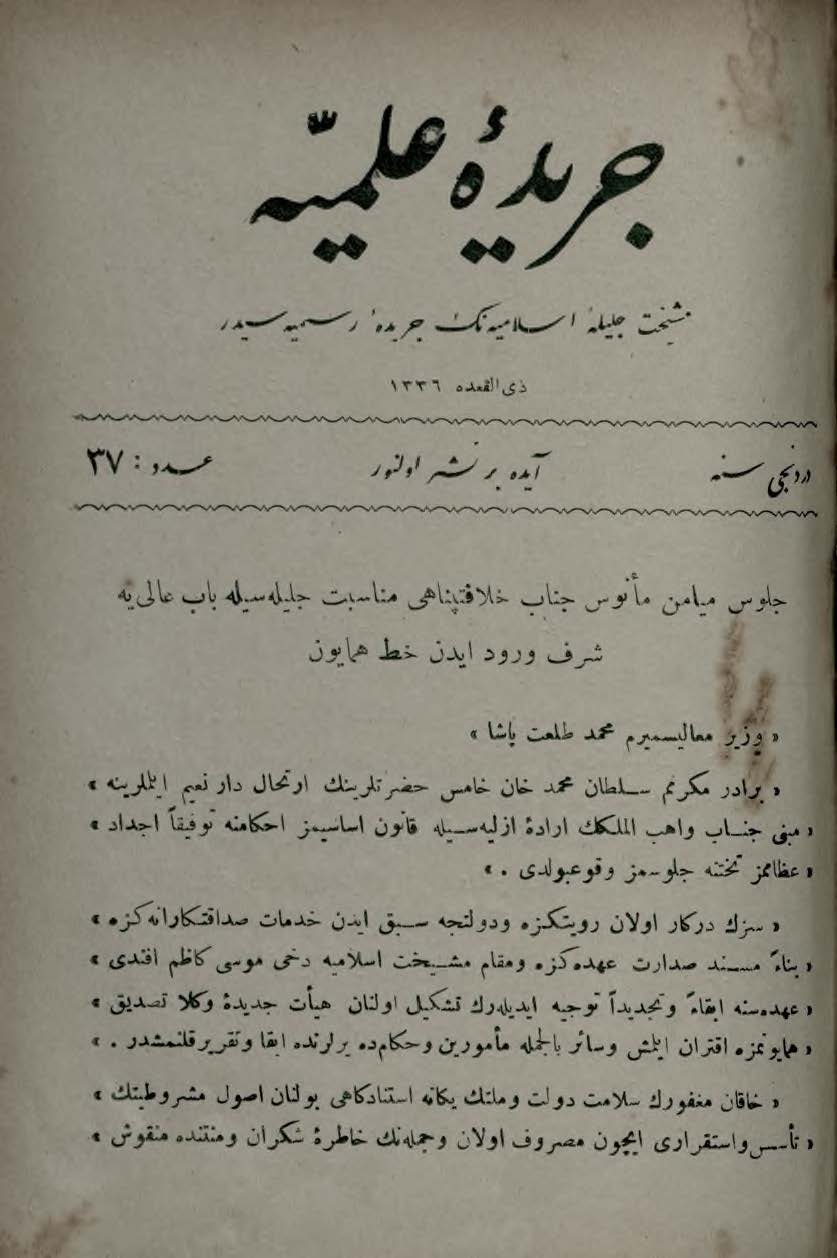 جريدۀ علميّه
مشيخت جليلۀ اسلاميه‌نك جريدۀ رسميه‌سيدر
ذى القعده ١٣٣٦
دردنجى سنه
آيده بر نشر اولنور
عدد : ٣٧
جلوس ميامن مأنوس جناب خلافتپناهى مناسبت جليله‌سيله باب عالى‌يه
شرف ورود ايدن خط همايون
« وزير معاليسميرم محمد طلعت پاشا »
« برادر مكرمم سلطان محمد خان خامس حضرتلرينك ارتحال دار نعيم ايلملرينه »
« مبنى جناب واهب الملكك ارادۀ ازليه‌سيله قانون اساسيمز احكامنه توفيقاً اجداد »
« عظاممز تختنه جلوسمز وقوعبولدى . »
« سزك دركار اولان رويتكزه ودولتجه سبق ايدن خدمات صداقتكارانه‌كزه »
« بناءً مسند صدارت عهده‌كزه ومقام مشيخت اسلاميه دخى موسى كاظم افندى »
« عهده‌سنه ابقاءً وتجديداً توجيه ايديله‌رك تشكيل اولنان هيأت جديدۀ وكلا تصديق »
« همايونمزه اقتران ايلمش وسائر بالجمله مأمورين وحكام‌ده يرلرنده ابقا وتقرير قلنمشدر . »
« خاقان مغفورك سلامت دولت وملتك يكانه استنادكاهى بولنان اصول مشروطيتك »
« تأسس واستقرارى ايچون مصروف اولان وجمله‌نك خاطرۀ شكران ومنتنده منقوش »